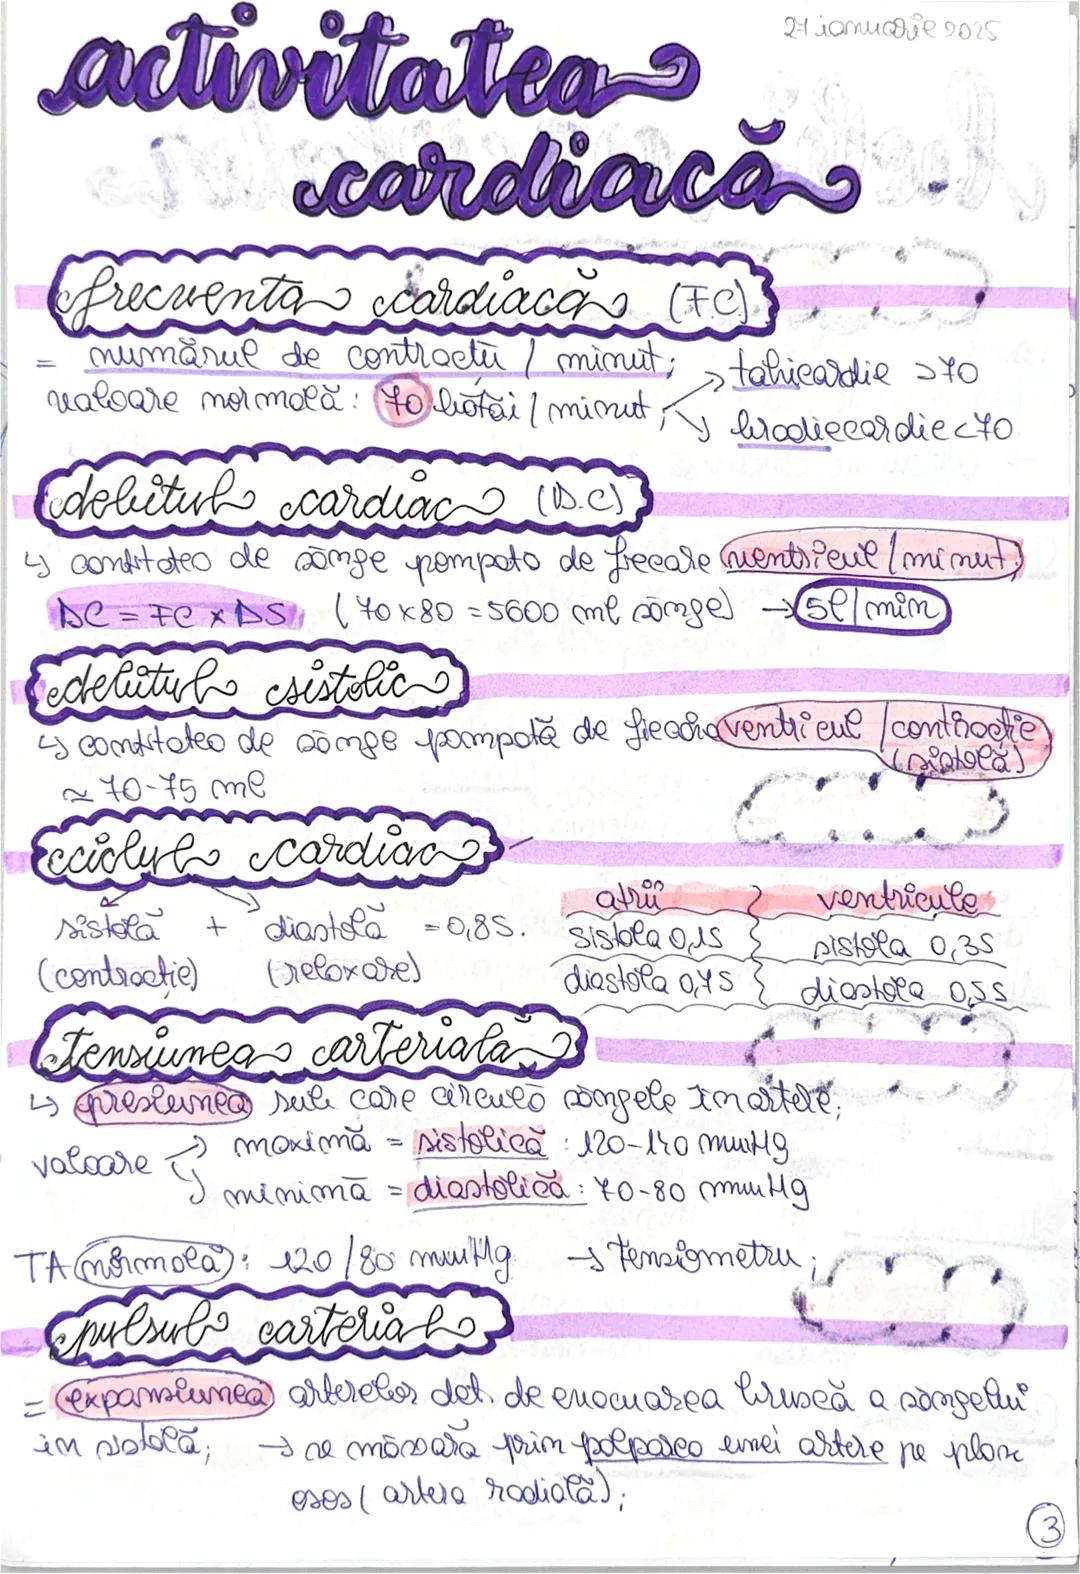 27 ianuarie 2025
activitatea
cardiacă
frecventa cardiacă (F.C)
= numărul de contractii / minut;
valoare normală: 70 bătăi / minut;
→ tahicardie >70
↘ bradiecardie <70
debitul cardiac (D.C)
↳ cantitatea de sânge pompata de fiecare ventricul / minut;
DC = FC x DS (70 x 80 = 5600 ml sânge) → 5l/min
debitul sistolic
↳ cantitatea de sânge pompată de fiecare ventricul / contracție
(sistolă)
≈ 70-75 ml
ciclul cardiac
sistolă + diastolă = 0,8s.
(contracție) (relaxare)
atrii ventricule
sistola 0,1s sistola 0,3s
diastola 0,7s diastola 0,5s
Tensiunea arterială
↳ presiunea sub care circulă sângele în artere;
valoare → maximă = sistolică : 120-140 mmHg
↘ minimă = diastolică : 70-80 mmHg
TA normală : 120/80 mmHg → Tensiometru;
pulsul arterial
= expansiunea arterelor det. de evacuarea bruscă a sângelui
în sistolă; → se măsoară prin palparea unei artere pe plan
osos (artera radială);
3